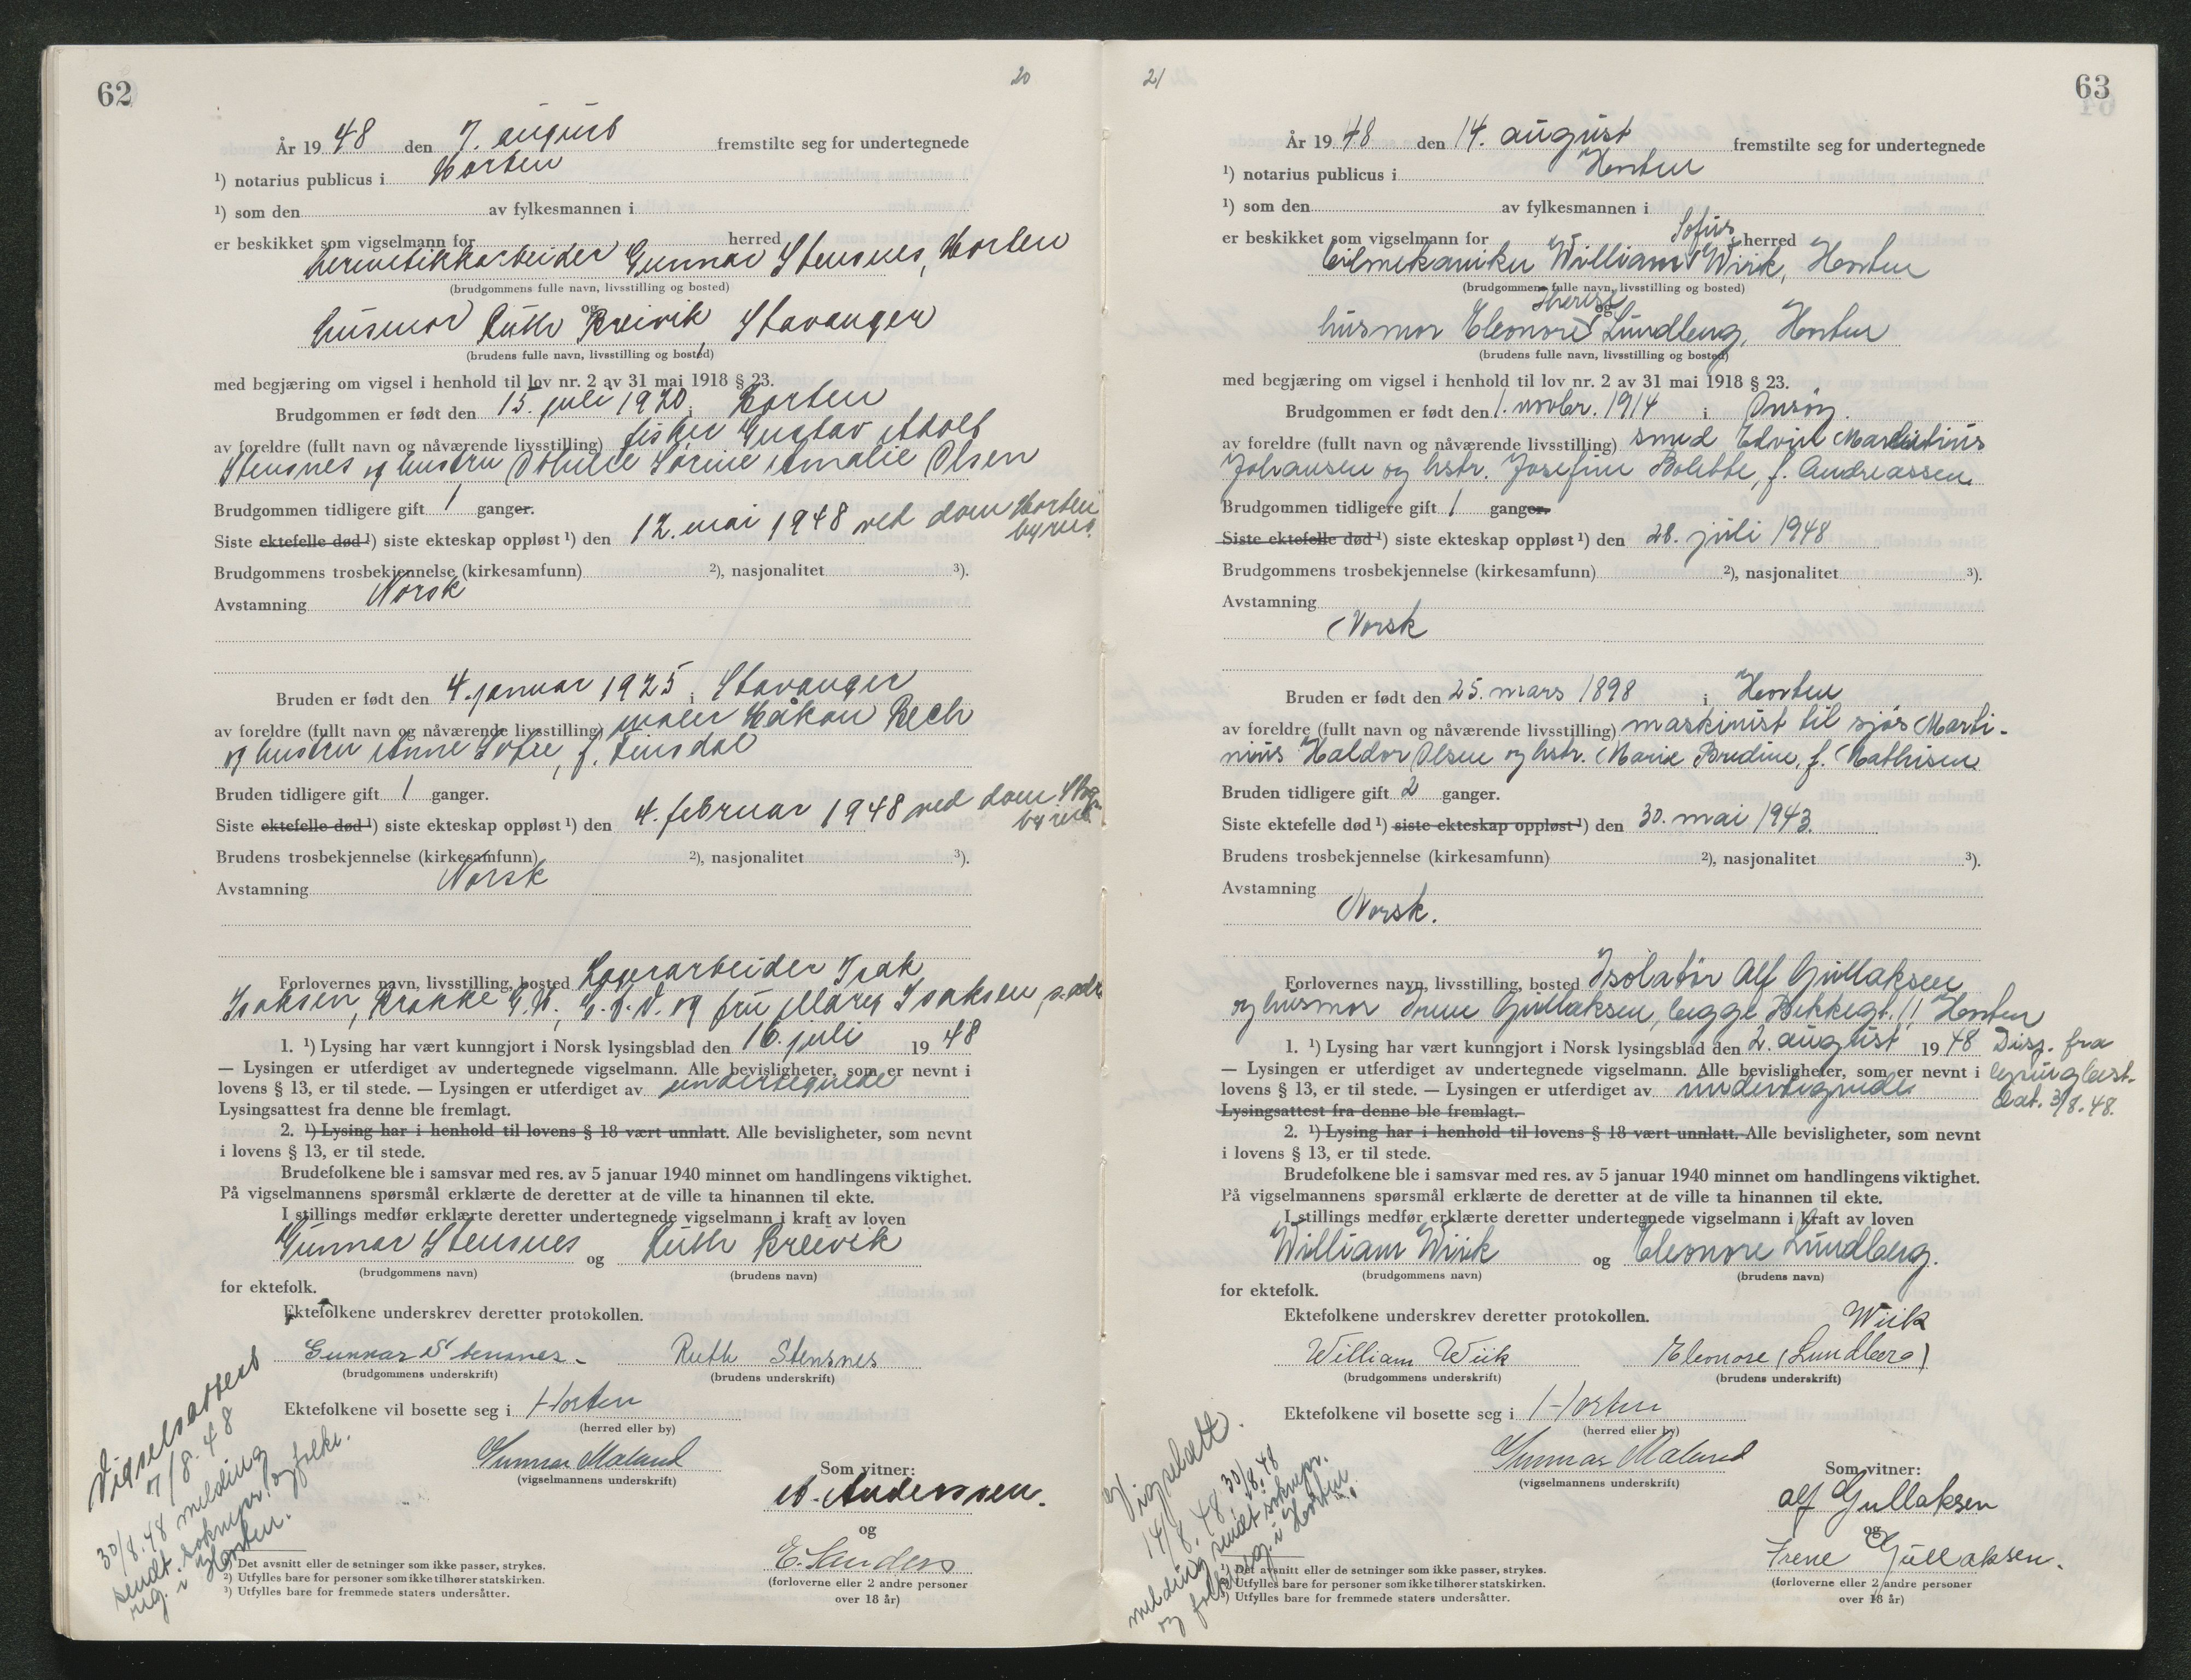 62
20
År 19 48 den 7. august fremstilte seg for undertegnede
¹) notarius publicus i Horten
¹) som den av fylkesmannen i
er beskikket som vigselmann for herred
hermetikkarbeider Gunnar Stensnes, Horten
(brudgommens fulle navn, livsstilling og bosted)
og
husmor Ruth Breivik, Stavanger
(brudens fulle navn, livsstilling og bosted)
med begjæring om vigsel i henhold til lov nr. 2 av 31 mai 1918 § 23.
Brudgommen er født den 15. juli 1920 i Horten
av foreldre (fullt navn og nåværende livsstilling) fisker Gustav Adolf
Stensnes og hustru Sørine Amalie Olsen
Brudgommen tidligere gift 1 ganger.
Siste ektefelle død ¹) siste ekteskap oppløst ¹) den 12. mai 1948 ved dom Horten
byrett.
Brudgommens trosbekjennelse (kirkesamfunn) ²), nasjonalitet ³).
Avstamning Norsk
Bruden er født den 4. januar 1925 i Stavanger
av foreldre (fullt navn og nåværende livsstilling) maler Håkon Bech
og hustru Anne Sofie, f. Tinsdal
Bruden tidligere gift 1 ganger.
Siste ektefelle død ¹) siste ekteskap oppløst ¹) den 4. februar 1948 ved dom Stvgr.
byrett.
Brudens trosbekjennelse (kirkesamfunn) ²), nasjonalitet ³).
Avstamning Norsk
Forlovernes navn, livsstilling, bosted Lagerarbeider Isak
Isaksen, og fru Mary Isaksen, s. adr.
1. ¹) Lysing har vært kunngjort i Norsk lysingsblad den 16. juli 19 48
— Lysingen er utferdiget av undertegnede vigselmann. Alle bevisligheter, som er nevnt i
lovens § 13, er til stede. — Lysingen er utferdiget av undertegnede
Lysingsattest fra denne ble fremlagt.
2. ¹) Lysing har i henhold til lovens § 18 vært unnlatt. Alle bevisligheter, som nevnt
i lovens § 13, er til stede.
Brudefolkene ble i samsvar med res. av 5 januar 1940 minnet om handlingens viktighet.
På vigselmannens spørsmål erklærte de deretter at de ville ta hinannen til ekte.
I stillings medfør erklærte deretter undertegnede vigselmann i kraft av loven
Gunnar Stensnes og Ruth Breivik
(brudgommens navn) (brudens navn)
for ektefolk.
Ektefolkene underskrev deretter protokollen.
Gunnar Stensnes. Ruth Stensnes
(brudgommens underskrift) (brudens underskrift)
Ektefolkene vil bosette seg i Horten
(herred eller by)
Gunnar Maland
(vigselmannens underskrift)
Som vitner:
A. Anderssen.
og
E. Sanders
(forloverne eller 2 andre personer
over 18 år)
Vigselsattest
7/8.48
30/8.48 melding
sendt soknepr. og folke.
reg. i Horten.
¹) Det avsnitt eller de setninger som ikke passer, strykes.
²) Utfylles bare for personer som ikke tilhører statskirken.
³) Utfylles bare for fremmede staters undersåtter.
21
63
År 19 48 den 14. august fremstilte seg for undertegnede
¹) notarius publicus i Horten
¹) som den av fylkesmannen i
er beskikket som vigselmann for herred
Sofus
bilmekaniker William Wiik, Horten
(brudgommens fulle navn, livsstilling og bosted)
Therese
og
husmor Eleonore Lundberg, Horten
(brudens fulle navn, livsstilling og bosted)
med begjæring om vigsel i henhold til lov nr. 2 av 31 mai 1918 § 23.
Brudgommen er født den 1. novbr. 1914 i Onsøy.
av foreldre (fullt navn og nåværende livsstilling) smed Edvin
Johansen og hstr. Josefine Bolette, f. Andreassen.
Brudgommen tidligere gift 1 ganger.
Siste ektefelle død ¹) siste ekteskap oppløst ¹) den 28. juli 1948
Brudgommens trosbekjennelse (kirkesamfunn) ²), nasjonalitet ³).
Avstamning
Norsk
Bruden er født den 25. mars 1898 i Horten
av foreldre (fullt navn og nåværende livsstilling) maskinist til sjøs Marti-
nius Haldor Olsen og hstr. Marie Bredine, f. Mathisen.
Bruden tidligere gift 2 ganger.
Siste ektefelle død ¹) siste ekteskap oppløst ¹) den 30. mai 1943.
Brudens trosbekjennelse (kirkesamfunn) ²), nasjonalitet ³).
Avstamning
Norsk.
Forlovernes navn, livsstilling, bosted Isolatør Alf Gullaksen
og husmor Irene Gullaksen, begge Bekkegt. 11 Horten
1. ¹) Lysing har vært kunngjort i Norsk lysingsblad den 2. august 19 48 Disp. fra
— Lysingen er utferdiget av undertegnede vigselmann. Alle bevisligheter, som er nevnt i
lovens § 13, er til stede. — Lysingen er utferdiget av undertegnede
dat. 3/8.48.
Lysingsattest fra denne ble fremlagt.
2. ¹) Lysing har i henhold til lovens § 18 vært unnlatt. Alle bevisligheter, som nevnt
i lovens § 13, er til stede.
Brudefolkene ble i samsvar med res. av 5 januar 1940 minnet om handlingens viktighet.
På vigselmannens spørsmål erklærte de deretter at de ville ta hinannen til ekte.
I stillings medfør erklærte deretter undertegnede vigselmann i kraft av loven
William Wiik og Eleonore Lundberg.
(brudgommens navn) (brudens navn)
for ektefolk.
Ektefolkene underskrev deretter protokollen.
Wiik
William Wiik Eleonore (Lundberg)
(brudgommens underskrift) (brudens underskrift)
Ektefolkene vil bosette seg i Horten
(herred eller by)
Gunnar Maland
(vigselmannens underskrift)
Som vitner:
Alf Gullaksen
og
Irene Gullaksen.
(forloverne eller 2 andre personer
over 18 år)
Vigselatt.
14/8.48. 30/8.48
melding sendt soknepr.
og folkereg. i Horten.
¹) Det avsnitt eller de setninger som ikke passer, strykes.
²) Utfylles bare for personer som ikke tilhører statskirken.
³) Utfylles bare for fremmede staters undersåtter.